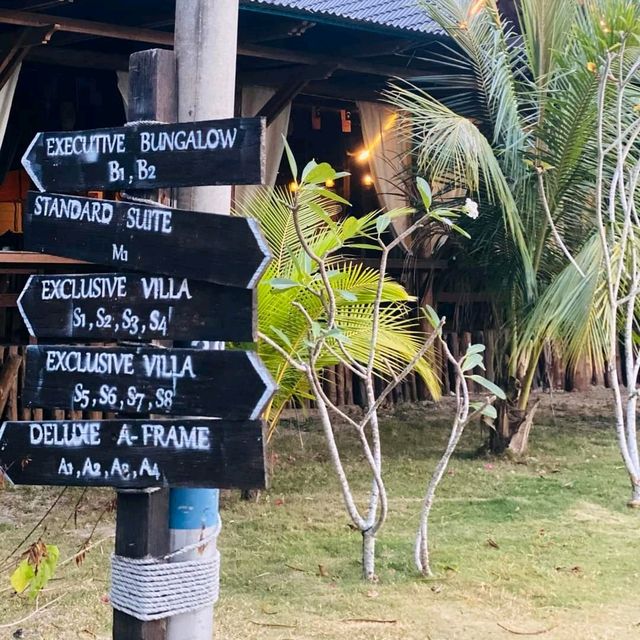 EXECUTIVE BUNGALOW
B1, B2
STANDARD SUITE
M1
EXCLUSIVE VILLA
S1, S2, S3, S4
EXCLUSIVE VILLA
S5, S6, S7, S8
DELUXE A-FRAME
A1, A2, A3, A4